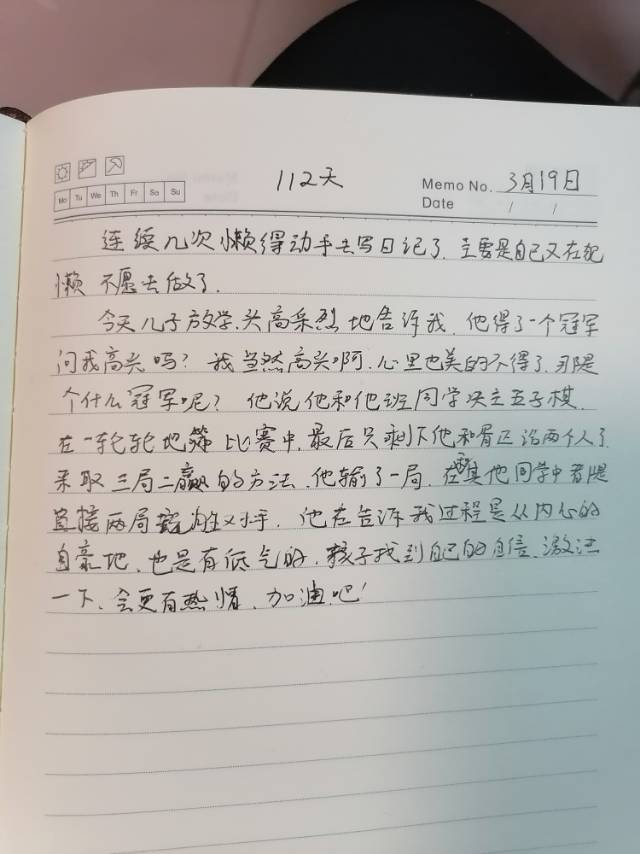 112天
Memo No. 3月19日
Mo Tu We Th Fr Sa Su
Date / /
连续几次懒得动手去写日记了，主要是自己又在犯
懒 不愿去做了．
今天儿子放学，兴高采烈地告诉我，他得了一个冠军
问我高兴吗？我当然高兴啊，心里也美的不得了，那是
个什么冠军呢？他说他和他班同学决立五子棋．
在一轮轮地筛比赛中，最后只剩下他和两个人了
采取三局二赢的方法，他输了一局，在其他同学中都是
直接两局对手，他在告诉我过程是从内心的
自豪地，也是有低气的，孩子找到自己的自信，激法
一下、会更有热情，加油吧！